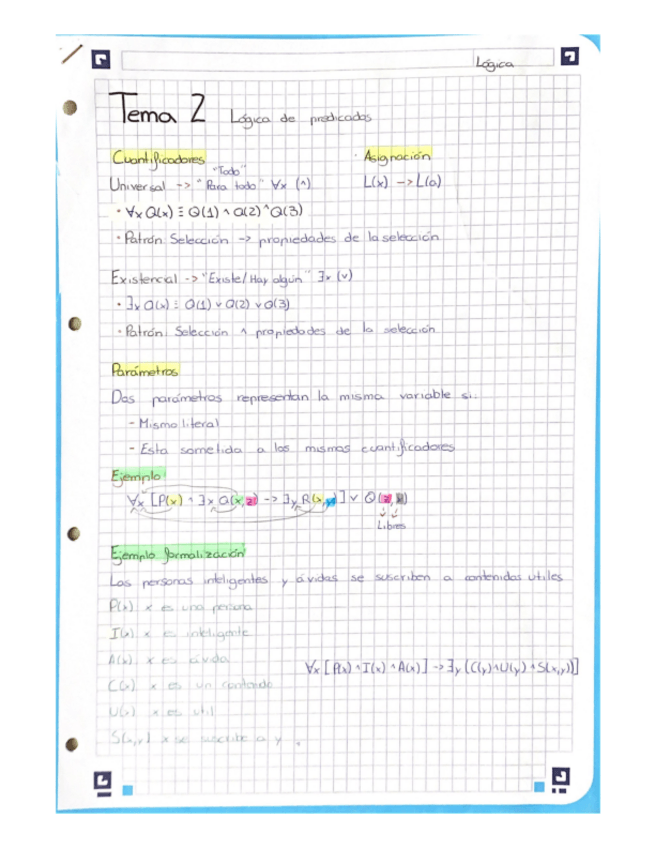 Lógica
Tema 2 Lógica de predicados
Cuantificadores
"Todo"
Universal -> "Para todo" ∀x (∧)
· ∀x Q(x) ≡ Q(1) ∧ Q(2) ^ Q(3)
· Patrón Selección -> propiedades de la selección
· Asignación
L(x) -> L(a)
Existencial -> "Existe/Hay algún" ∃x (∨)
· ∃x Q(x) ≡ Q(1) ∨ Q(2) ∨ Q(3)
· Patrón: Selección ∧ propiedades de la selección
Parámetros
Dos parámetros representan la misma variable si.
- Mismo literal
- Esta sometida a los mismos cuantificadores
Ejemplo
∀x [P(x) ∧ ∃x Q(x,z) -> ∃y R(x,y)] ∨ Q(z, )
Libres
Ejemplo formalización
Las personas inteligentes y ávidas se suscriben a contenidos utiles
P(x) x es una persona
I(x) x es inteligente
A(x) x es ávida
C(x) x es un contenido
U(x) x es util
S(x,y) x se suscribe a y .
∀x [P(x) ∧ I(x) ∧ A(x)] -> ∃y (C(y) ∧ U(y) ∧ S(x,y))]